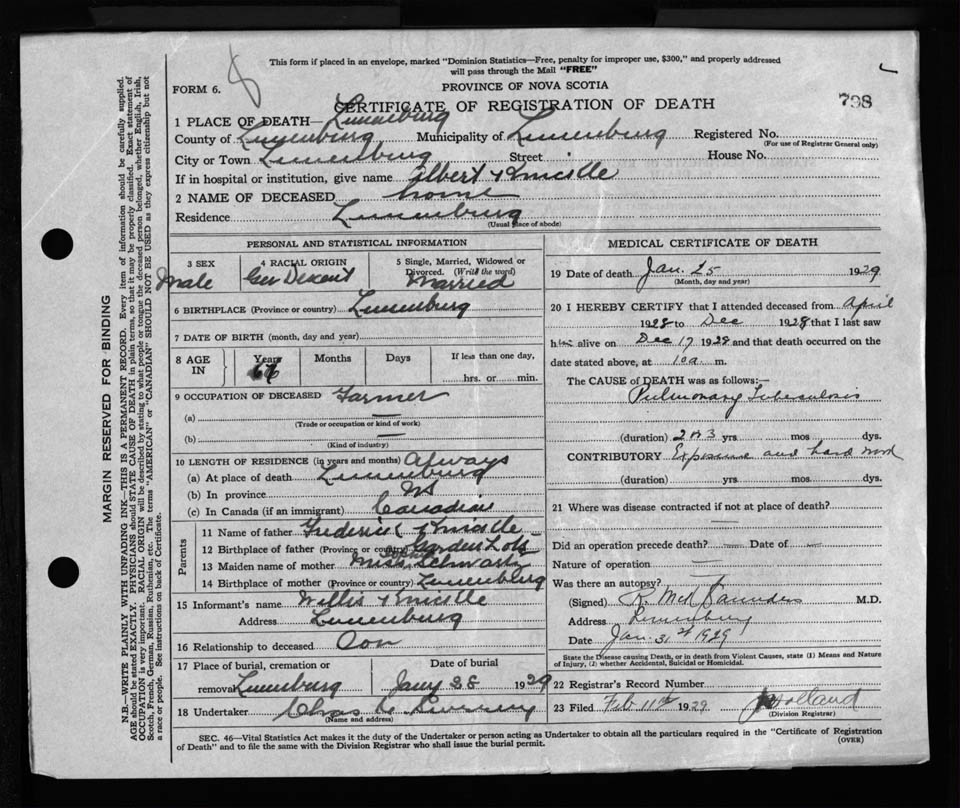 This form if placed in an envelope, marked "Dominion Statistics—Free, penalty for improper use, $300," and properly addressed
will pass through the Mail "FREE"
8
FORM 6.
PROVINCE OF NOVA SCOTIA
CERTIFICATE OF REGISTRATION OF DEATH
798
1 PLACE OF DEATH— Lunenburg
County of Lunenburg Municipality of Lunenburg Registered No.
(For use of Registrar General only)
City or Town Lunenburg Street House No.
If in hospital or institution, give name Albert Knickle
2 NAME OF DECEASED home
Residence Lunenburg
(Usual place of abode)
PERSONAL AND STATISTICAL INFORMATION
3 SEX 4 RACIAL ORIGIN 5 Single, Married, Widowed or
Divorced. (Write the word)
Male Ger Decent Married
6 BIRTHPLACE (Province or country) Lunenburg
7 DATE OF BIRTH (month, day and year)
8 AGE IN Years Months Days If less than one day,
hrs. or min.
9 OCCUPATION OF DECEASED Farmer
(a) —
(Trade or occupation or kind of work)
(b) —
(Kind of industry)
10 LENGTH OF RESIDENCE (in years and months) Always
(a) At place of death Lunenburg
(b) In province NS
(c) In Canada (if an immigrant) Canadian
Parents
11 Name of father Frederick Knickle
12 Birthplace of father (Province or country) Garden Lots
13 Maiden name of mother Miss Schwartz
14 Birthplace of mother (Province or country) Lunenburg
15 Informant's name Willis Knickle
Address Lunenburg
16 Relationship to deceased Son
17 Place of burial, cremation or Date of burial
removal Lunenburg Jany 28 1929
18 Undertaker Chas
(Name and address)
MEDICAL CERTIFICATE OF DEATH
19 Date of death Jan. 25 1929
(Month, day and year)
20 I HEREBY CERTIFY that I attended deceased from April
1928 to Dec 1928 that I last saw
him alive on Dec 17 1928 and that death occurred on the
date stated above, at 10 a. m.
The CAUSE of DEATH was as follows:—
Pulmonary Tuberculosis
(duration) 2 or 3 yrs. mos dys.
CONTRIBUTORY Exposure and hard work
(duration) yrs. mos dys.
21 Where was disease contracted if not at place of death?
—
Did an operation precede death? — Date of —
Nature of operation —
Was there an autopsy?
(Signed) R. McK Saunders M.D.
Address Lunenburg
Date Jan. 31st 1929
State the Disease causing Death, or in death from Violent Causes, state (1) Means and Nature
of Injury, (2) whether Accidental, Suicidal or Homicidal.
22 Registrar's Record Number
23 Filed Feb 11th 1929 Holland
(Division Registrar)
SEC. 46—Vital Statistics Act makes it the duty of the Undertaker or person acting as Undertaker to obtain all the particulars required in the "Certificate of Registration
of Death" and to file the same with the Division Registrar who shall issue the burial permit.
(OVER)
MARGIN RESERVED FOR BINDING
N.B—WRITE PLAINLY WITH UNFADING INK—THIS IS A PERMANENT RECORD. Every item of information should be carefully supplied.
AGE should be stated EXACTLY. PHYSICIANS should STATE CAUSE OF DEATH in plain terms, so that it may be properly classified. Exact statement of
OCCUPATION is very important. RACIAL ORIGIN will be described by stating to what people or tongue the deceased person belonged, whether English, Irish,
Scotch, French, German, Russian, Ruthenian, etc. The terms "AMERICAN" or "CANADIAN" SHOULD NOT BE USED as they express citizenship but not
a race or people. See instructions on back of Certificate.